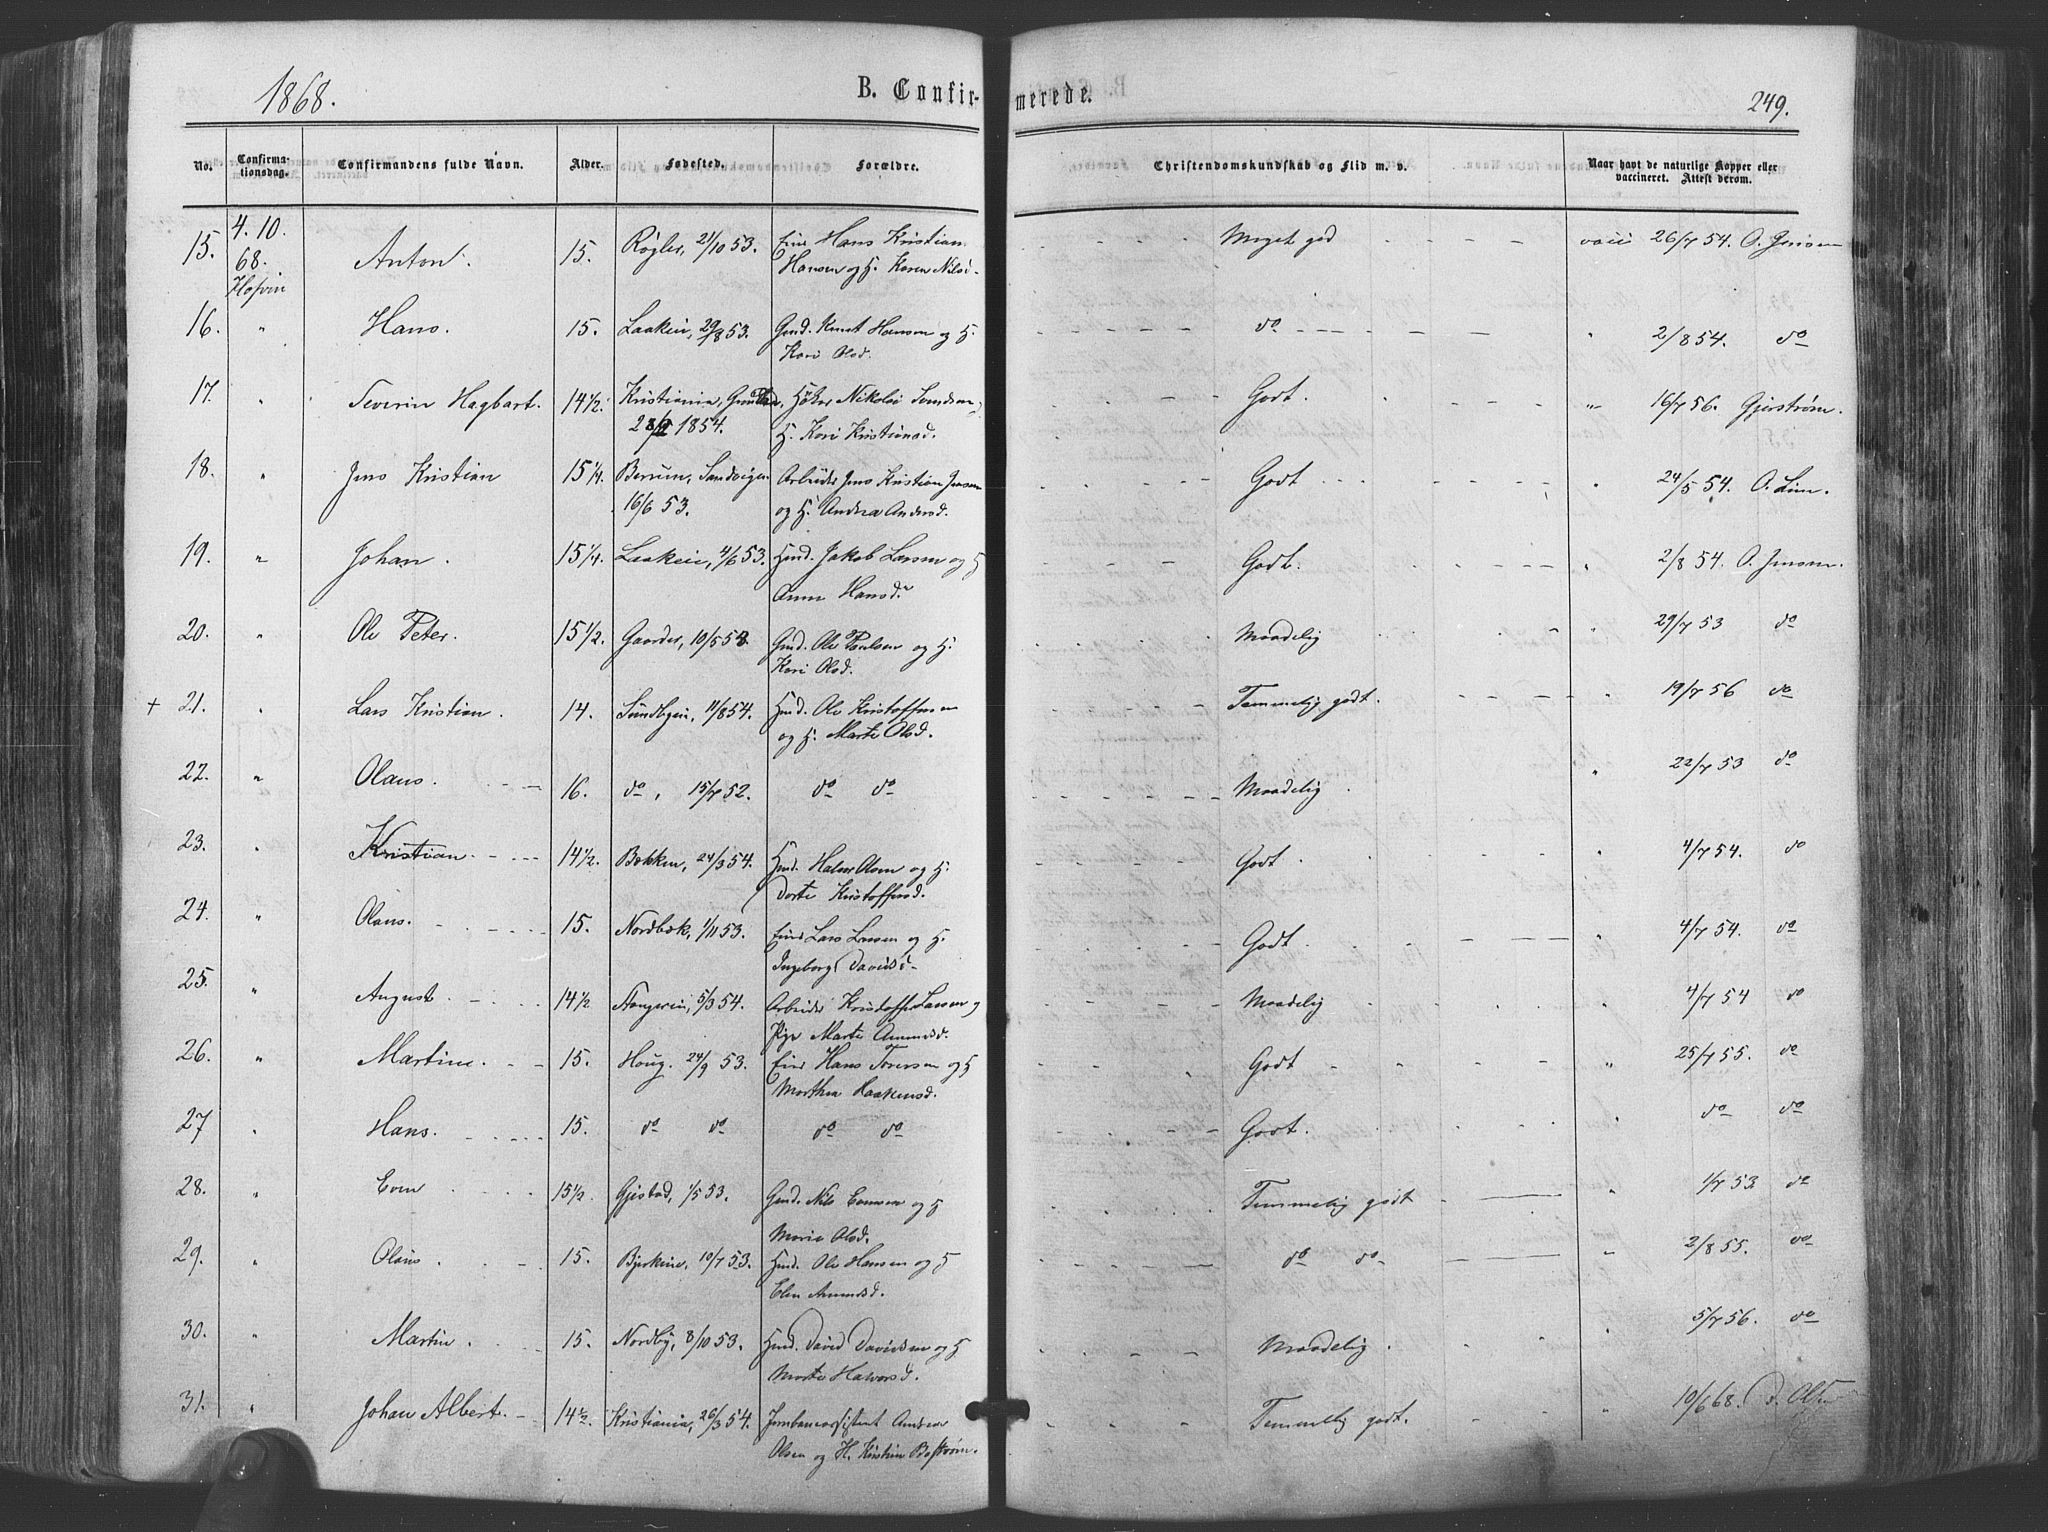 1868.
B. Confirmerede.
249.
No. Confirmationsdag. Confirmandens fulde Navn. Alder. Fødested. Forældre. Christendomskundskab og Flid m. v. Naar havt de naturlige Kopper eller vaccineret. Attest derom.
15. 4. 10. 68. Hofvin Anton. 15. Røgler, 21/10 53. Hans Kristian Meget god vacc 26/7 54. O. Jensen
Hansen og H. Karen Nilsd.
16. " Hans. 15. Laakei, 29/8 53. Gmd. Knut Hansen og H. do " 2/8 54. do
Kari Olsd.
17. " Severin Hagbart. 14 1/2. Kristiania, Høker Nikolai Svendsen og Godt. " 16/7 56. Gjerstrøm.
1854. H. Kari Kristiansd.
18. " Jens Kristian 15 1/4 Berum, Sandvigen Arbeider Jens Kristian Jensen Godt " 24/5 54. O. Lim.
16/6 53. og H. Andrea Andersd.
19. " Johan. 15 1/4. Laakei, 4/6 53. Hmd. Jakob Larsen og H Godt. " 2/8 54. O. Jensen.
Anne Hansd.
20. " Ole Peter. 15 1/2. Gaarder, 10/5 53 Gmd. Ole Paulsen og H. Maadelig 29/7 53 do
Kari Olsd.
+ 21. " Lars Kristian. 14. Sundbyei, 11/8 54. Hmd. Ole Kristoffersen Temmelig godt. " 19/7 56 do
og H. Marte Olsd.
22. " Olaus. 16. do, 15/7 52. do do Maadelig. " 22/7 53 do
23. " Kristian. 14 1/2. Bakken, 24/3 54. Hmd. Halvor Olsen og H. Godt " 4/7 54. do
Dorte Kristoffersd.
24. " Olaus. 15. Nordbæk, 1/11 53. Lars Larsen og H. Godt. " 4/7 54. do
Ingeborg Davidsd.
25. " August. 14 1/2 5/3 54. Arbeider Kristoffer Larsen og Maadelig " 4/7 54 do
Pige Marte Amundsd.
26. " Martin. 15. Houg. 24/9 53. Hans Toresen og H Godt " 25/7 55. do
Marthea Haakensd.
27 " Hans. 15. do do do do Godt. do do
28. " Even 15 1/2. Gjestad, 1/5 53. Gmd. Nils Evensen og H Temmelig godt " 1/7 53 do
Marie Olsd.
29. " Olaus. 15. Bjerkeie, 10/7 53. Hmd. Ole Hansen og H do do " 2/8 55. do
Elen Amundsd.
30. " Martin. 15. Nordby, 8/10 53. Hmd. David Davidsen og H Maadelig. " 5/7 56. do
Marte Halvorsd.
31. " Johan Albert. 14 1/2. Kristiania, 26/3 54. Jernbaneassistent Andreas Temmelig godt. 10/6 68.
Olsen og H. Kristine Bostrøm.